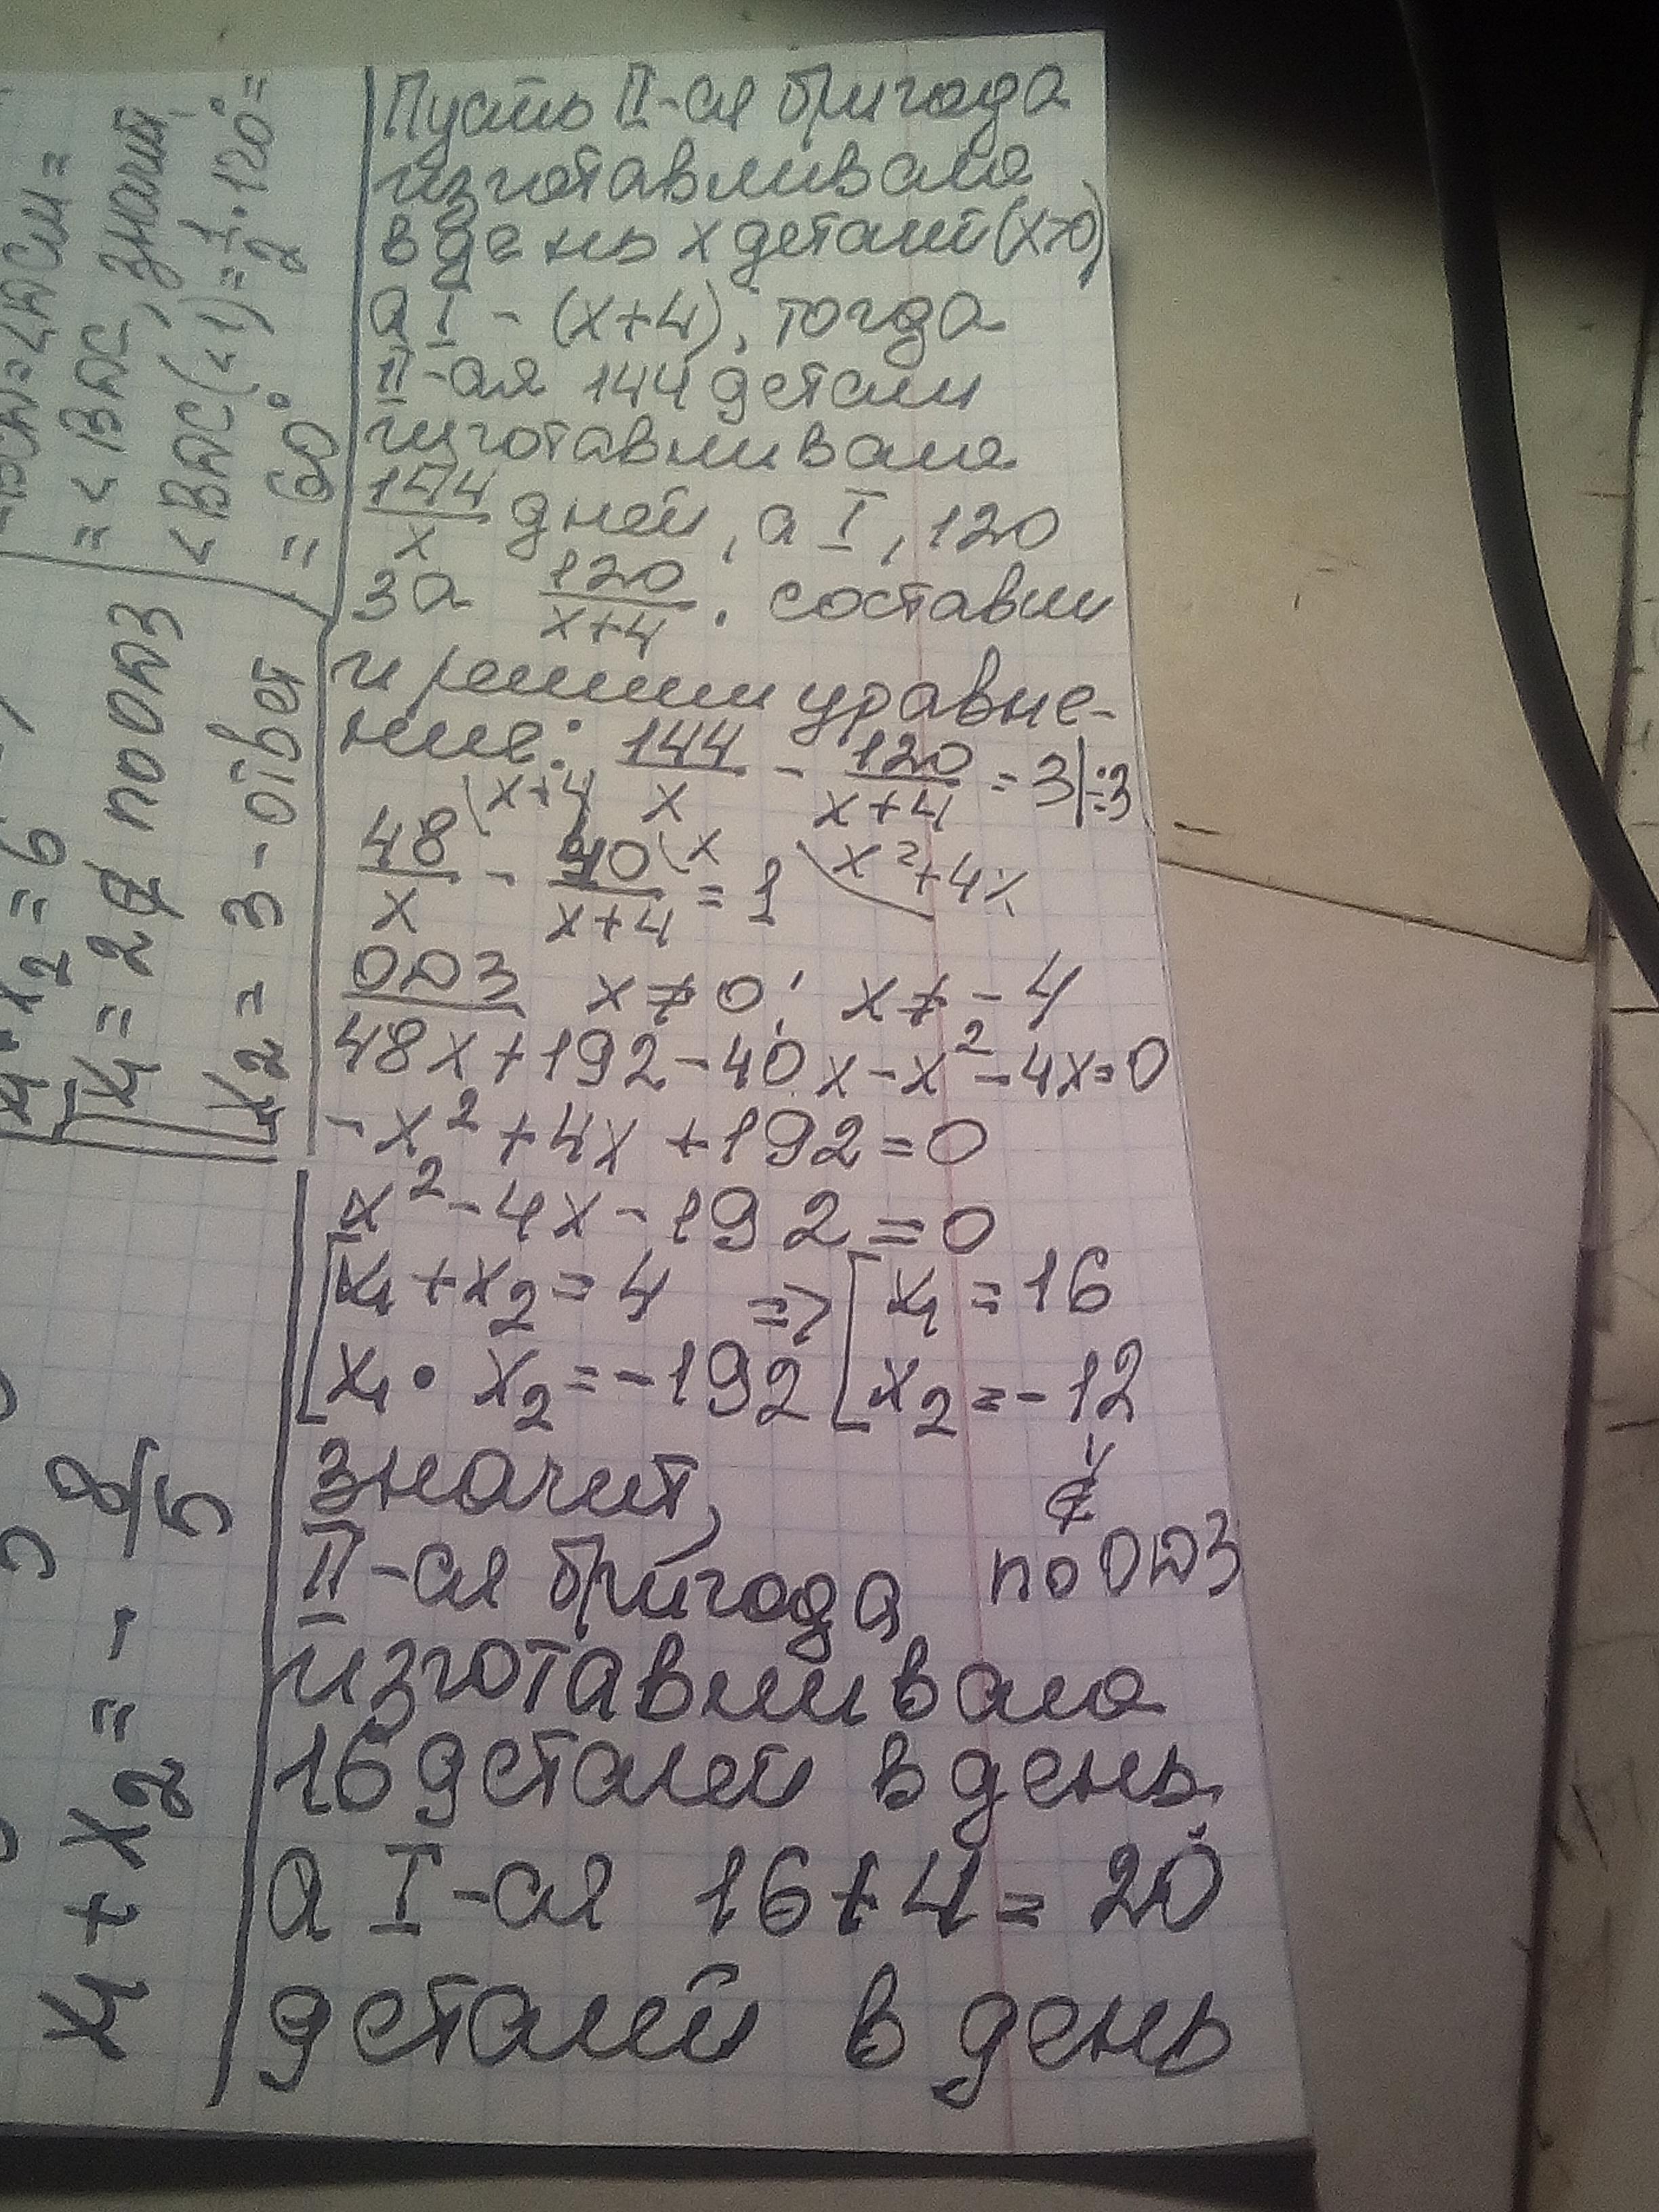 Пусть II-ая бригада
изготавливала
в день x деталей (x>0),
а I - (x+4), тогда
II-ая 144 детали
изготавливала
144/x дней, а I, 120
за 120/(x+4). составим
и решим уравне-
ние: 144/x - 120/(x+4) = 3 |:3
48/x \(x+4) - 40/(x+4) \x = 1 \x²+4x
ОДЗ x≠0; x≠-4
48x+192-40x-x²-4x=0
-x²+4x+192=0
x²-4x-192=0
[x₁+x₂=4 => [x₁=16
[x₁•x₂=-192 [x₂=-12
∉
по ОДЗ
значит,
II-ая бригада
изготавливала
16 деталей в день.
а I-ая 16+4=20
деталей в день
= < BAC, значит,
< BAC (<1) = 1/2 • 120° =
= 60°
x₁•x₂=6
[x₁=2 ∉ по ОДЗ
[x₂=3 - ответ
x₁+x₂=- 8/5